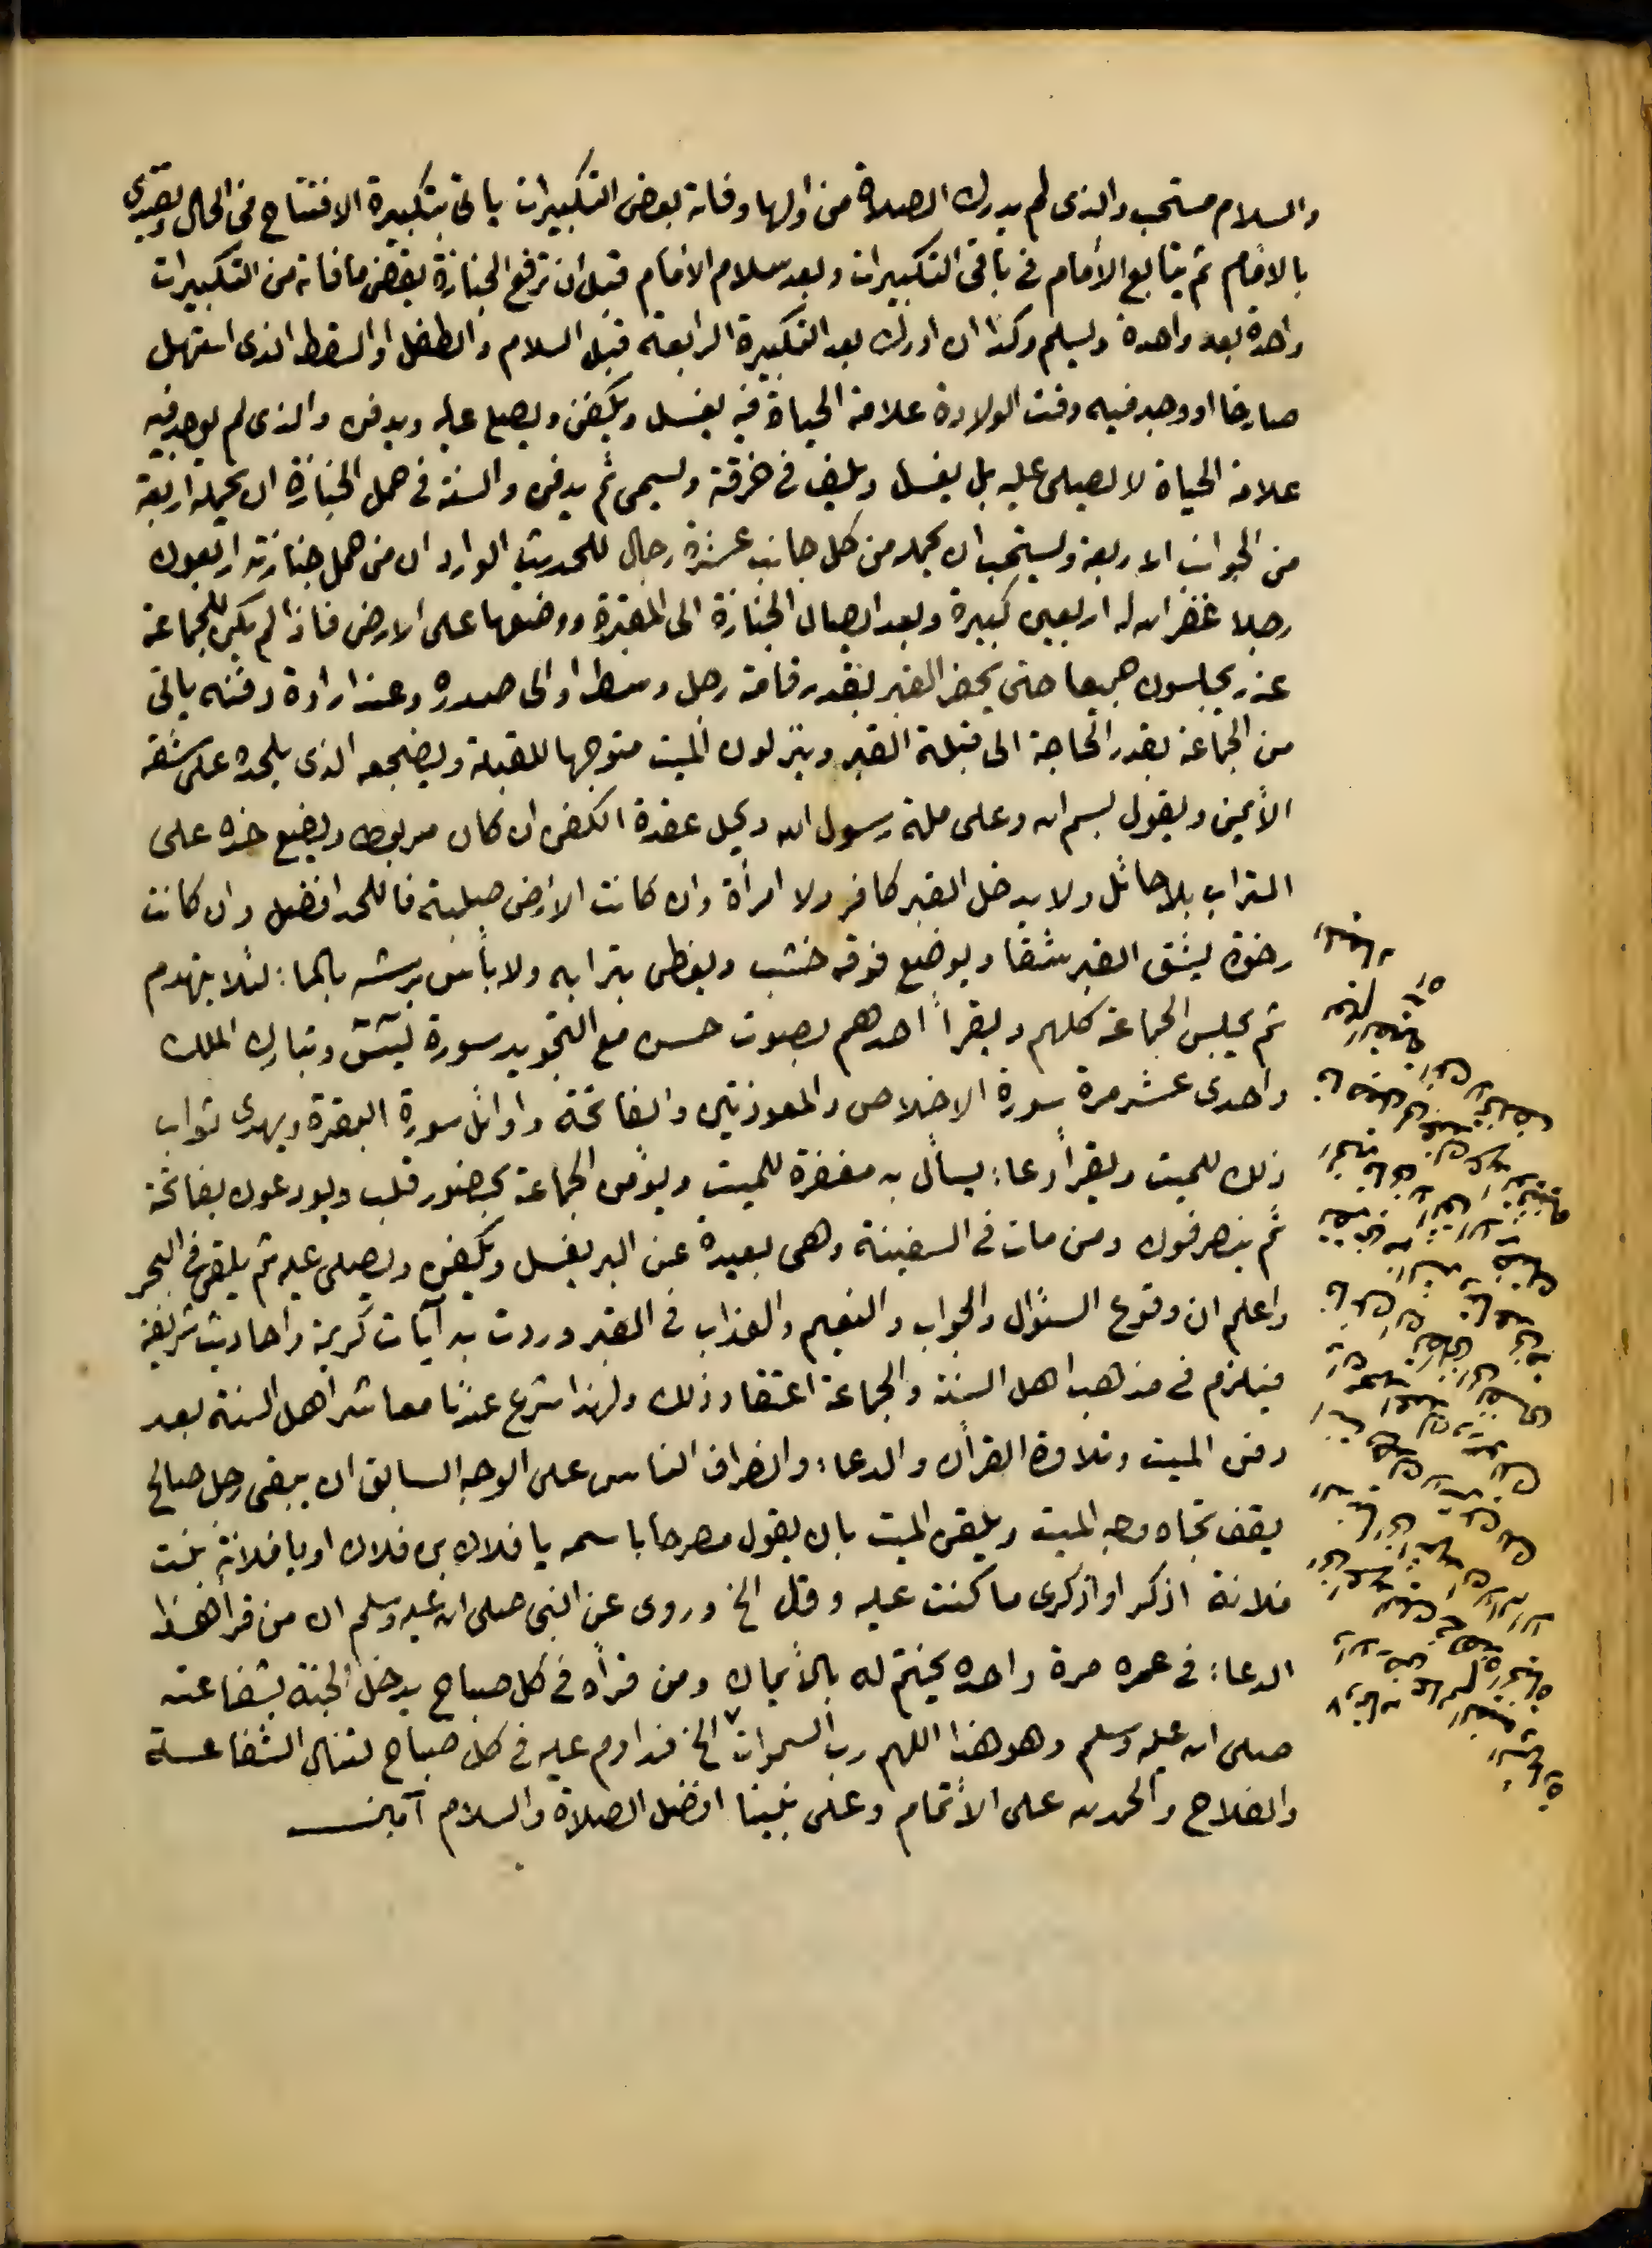 والسلام مستحب والذى لم يدرك الصلاة من اولها وفاته بعض التكبيرات ياتى بتكبيرة الافتتاح فى الحال ويقتدى
بالامام ثم يتابع الأمام فى باقى التكبيرات وبعد سلام الامام قبل ان ترفع الجنازة يقضى ما فاته من التكبيرات
واحدة بعد واحدة ويسلم وكذا ان ادرك بعد التكبيرة الرابعة قبل السلام والطفل او السقط الذى استهل
صارخا او وجد فيه وقت الولادة علامة الحياة فيه يغسل ويكفن ويصلى عليه ويدفن والذى لم يوجد فيه
علامة الحياة لا يصلى عليه بل يغسل ويلف فى خرقة ويسمى ثم يدفن والسنة فى حمل الجنازة ان يحمله اربعة
من الجوانب الاربعة ويستحب ان يحمله من كل جانب عشرة رجال للحديث الوارد ان من حمل جنازته اربعون
رجلا غفر الله له اربعين كبيرة وبعد ايصال الجنازة الى المقبرة ووضعها على الارض فاذا لم يكن للجماعة
عذر يجلسون جميعا حتى يحفر القبر بقدر قامة رجل وسط او الى صدره وعند ارادة دفنه ياتى
من الجماعة بقدر الحاجة الى قبلة القبر وينزلون الميت متوجها للقبلة ويضجعه الذى يلحده على شقه
الأيمن ويقول بسم الله وعلى ملة رسول الله ويحل عقدة الكفن ان كان مربوطا ويضع خده على
التراب بلا حائل ولا يدخل القبر كافر ولا امرأة وان كانت الارض صلبة فاللحد افضل وان كانت
رخوة يشق القبر شقا ويوضع فوقه خشب ويغطى بترابه ولا بأس برشه بالماء لئلا ينهدم
ثم يجلس الجماعة كلهم ويقرأ احدهم بصوت حسن مع التجويد سورة يس وتبارك الملك
واحدى عشر مرة سورة الاخلاص والمعوذتين والفاتحة واوائل سورة البقرة ويهدى ثواب
ذلك للميت ويقرأ دعاء يسأل به مغفرة للميت ويؤمن الجماعة بحضور قلب ويودعون بفاتحة
ثم ينصرفون ومن مات فى السفينة وهى بعيدة عن البر يغسل ويكفن ويصلى عليه ثم يلقى فى البحر
واعلم ان وقوع السؤال والجواب والنعيم والعذاب فى القبر وردت به آيات كريمة واحاديث شريفة
فيلزم فى مذهب اهل السنة والجماعة اعتقاد ذلك ولهذا شرع عندنا معاشر اهل السنة بعد
دفن الميت وتلاوة القرأن والدعاء وانصراف الناس على الوجه السابق ان يبقى رجل صالح
يقف تجاه وجه الميت ويلقن الميت بان يقول مصرحا باسمه يا فلان بن فلان او يا فلانة بنت
فلانة اذكر او اذكرى ما كنت عليه وقل الخ وروى عن النبى صلى الله عليه وسلم ان من قرأ هذا
الدعاء فى عمره مرة واحده يختم له بالأيمان ومن قرأه فى كل صباح يدخل الجنة بشفاعته
صلى الله عليه وسلم وهو هذا اللهم رب السموات الخ فداوم عليه فى كل صباح لتنال الشفاعة
والفلاح والحمد لله على الأتمام وعلى نبينا افضل الصلاة والسلام آمين